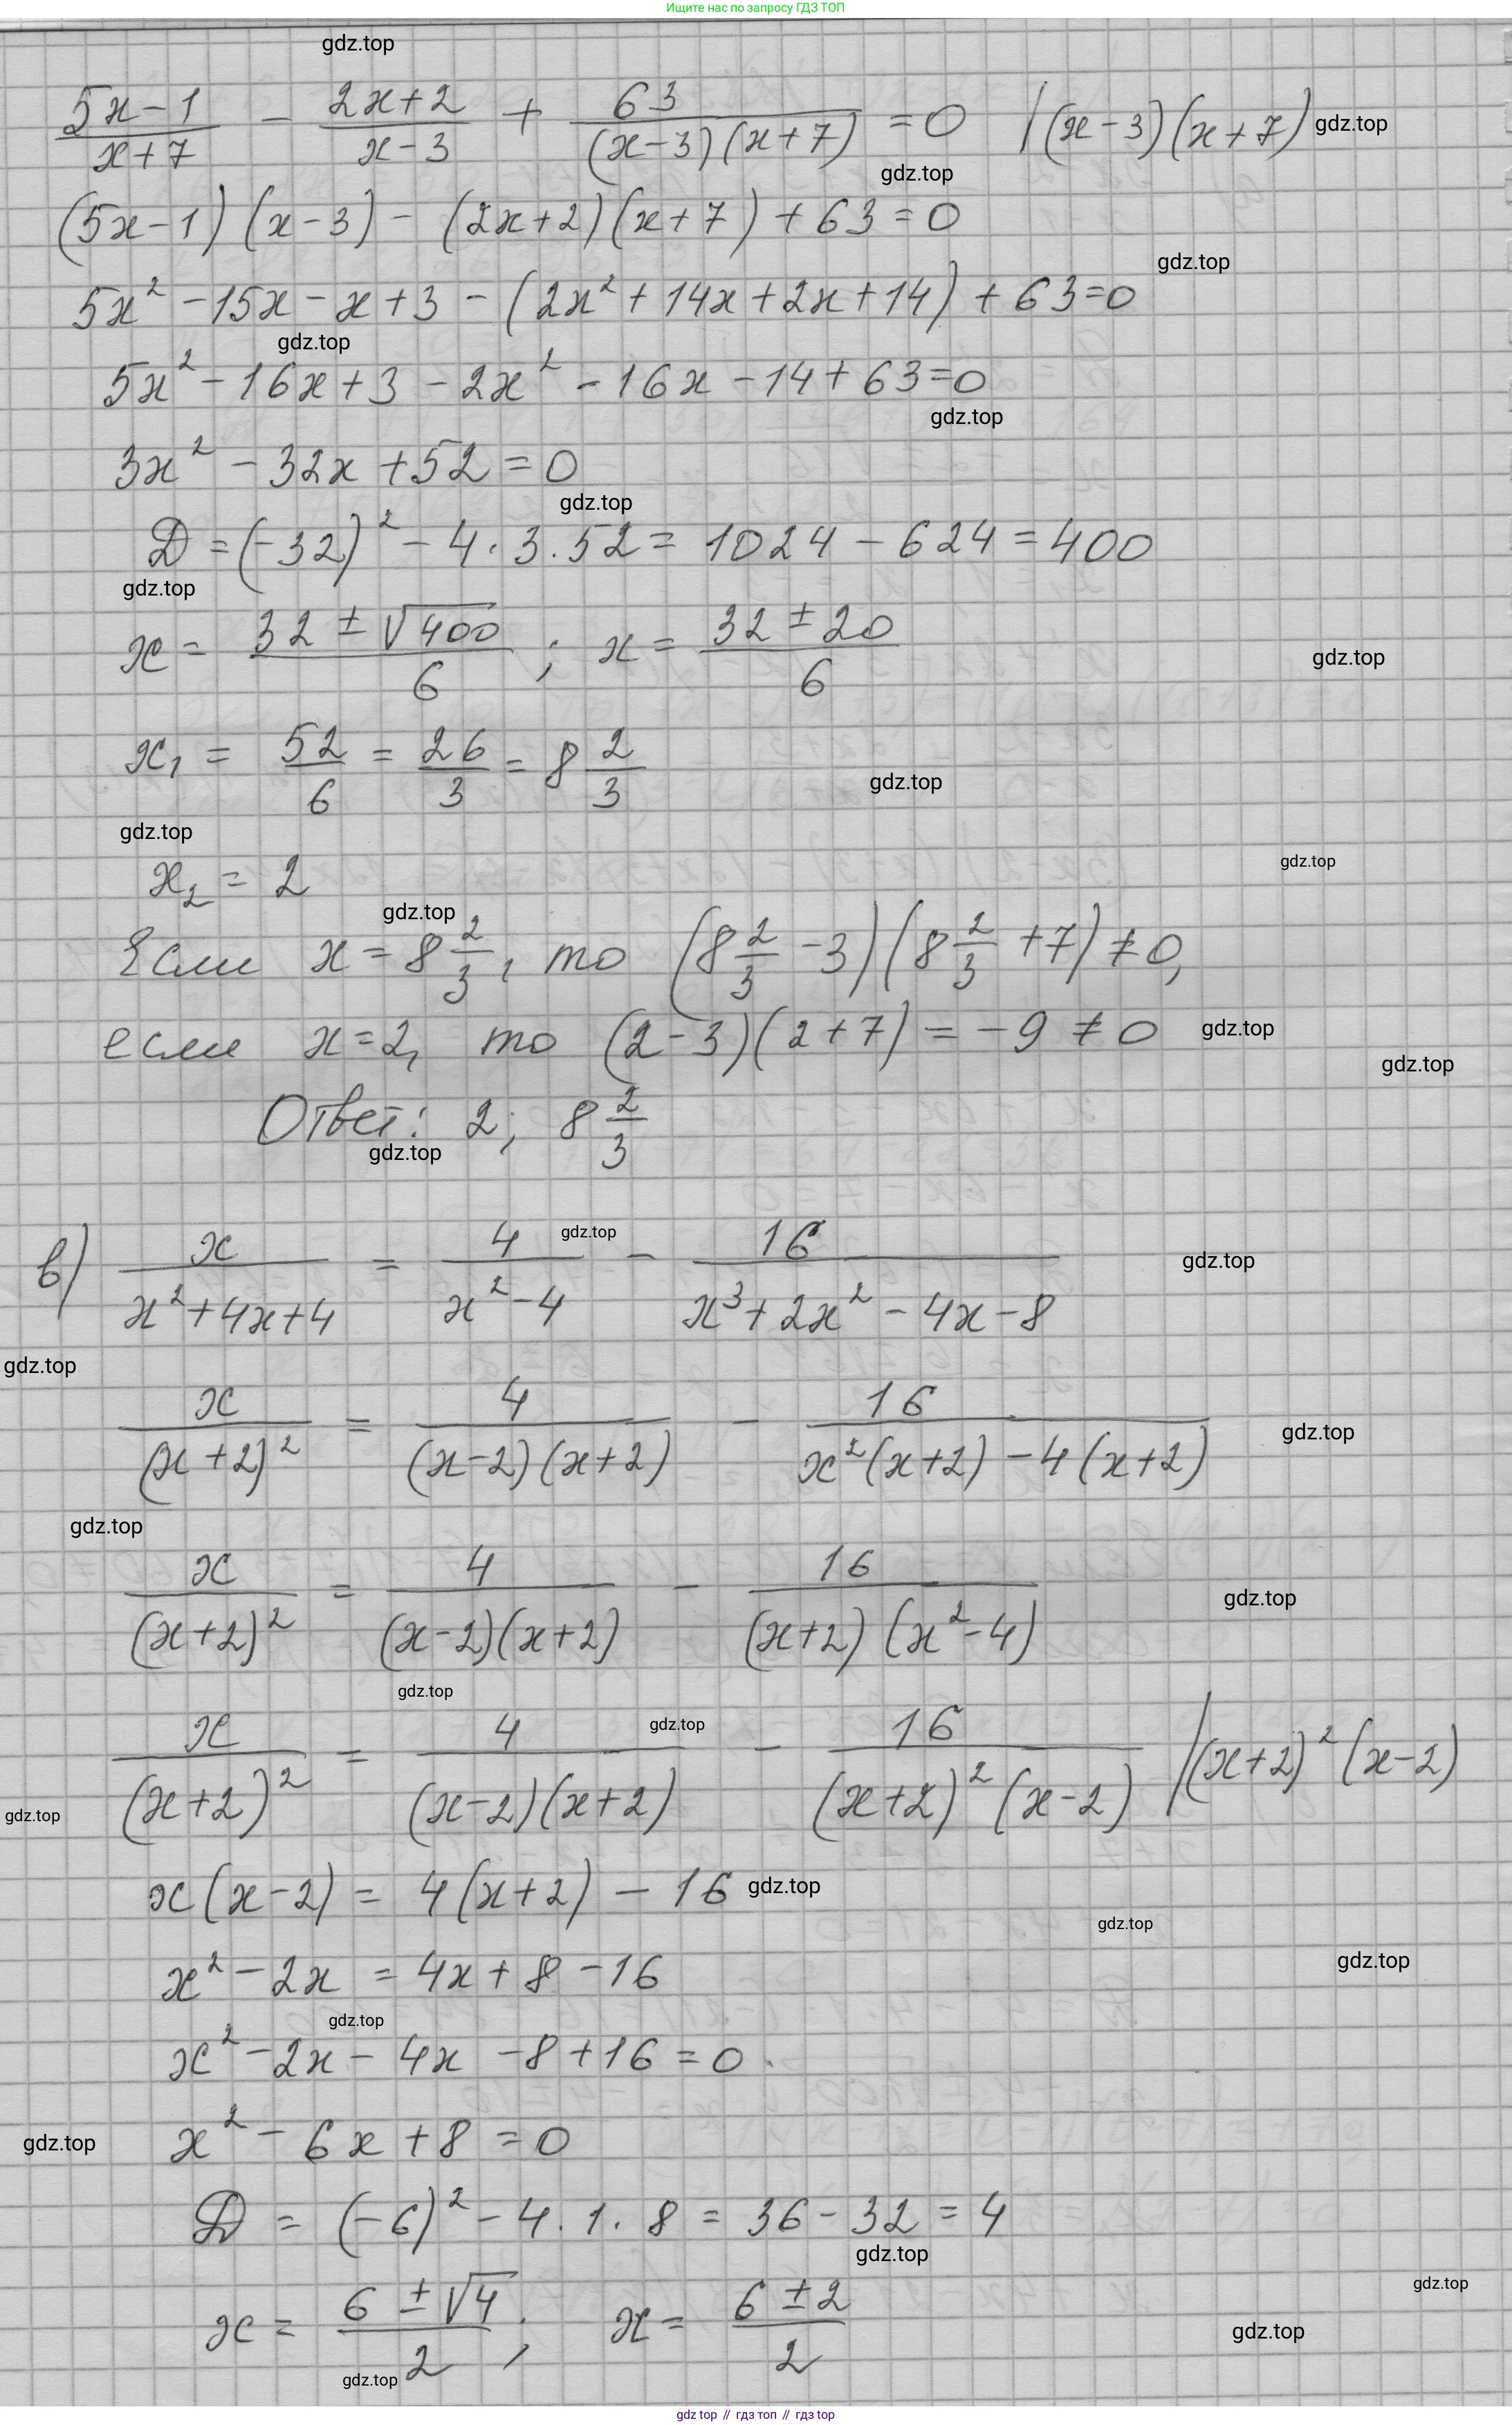 Ищите нас по запросу ГДЗ ТОП
gdz.top
(5x-1)/(x+7) - (2x+2)/(x-3) + 63/((x-3)(x+7)) = 0 | (x-3)(x+7) gdz.top
gdz.top
(5x-1)(x-3) - (2x+2)(x+7) + 63 = 0
gdz.top
5x² - 15x - x + 3 - (2x² + 14x + 2x + 14) + 63 = 0
gdz.top
5x² - 16x + 3 - 2x² - 16x - 14 + 63 = 0
gdz.top
3x² - 32x + 52 = 0
gdz.top
D = (-32)² - 4 · 3 · 52 = 1024 - 624 = 400
gdz.top
x = (32 ± √400)/6 ; x = (32 ± 20)/6
gdz.top
x₁ = 52/6 = 26/3 = 8 2/3
gdz.top
gdz.top
x₂ = 2
gdz.top
gdz.top
Если x = 8 2/3, то (8 2/3 - 3)(8 2/3 + 7) ≠ 0,
если x = 2, то (2-3)(2+7) = -9 ≠ 0 gdz.top
gdz.top
Ответ: 2; 8 2/3
gdz.top
в) x/(x²+4x+4) = 4/(x²-4) - 16/(x³+2x²-4x-8)
gdz.top
gdz.top
gdz.top
x/(x+2)² = 4/((x-2)(x+2)) - 16/(x²(x+2)-4(x+2))
gdz.top
gdz.top
x/(x+2)² = 4/((x-2)(x+2)) - 16/((x+2)(x²-4))
gdz.top
gdz.top
gdz.top
x/(x+2)² = 4/((x-2)(x+2)) - 16/((x+2)²(x-2)) | (x+2)²(x-2)
gdz.top
x(x-2) = 4(x+2) - 16 gdz.top
gdz.top
gdz.top
x² - 2x = 4x + 8 - 16
gdz.top
x² - 2x - 4x - 8 + 16 = 0.
gdz.top
x² - 6x + 8 = 0
D = (-6)² - 4 · 1 · 8 = 36 - 32 = 4
gdz.top
gdz.top
x = (6 ± √4)/2 ; x = (6 ± 2)/2
gdz.top
gdz.top
gdz top // гдз топ // гдз top